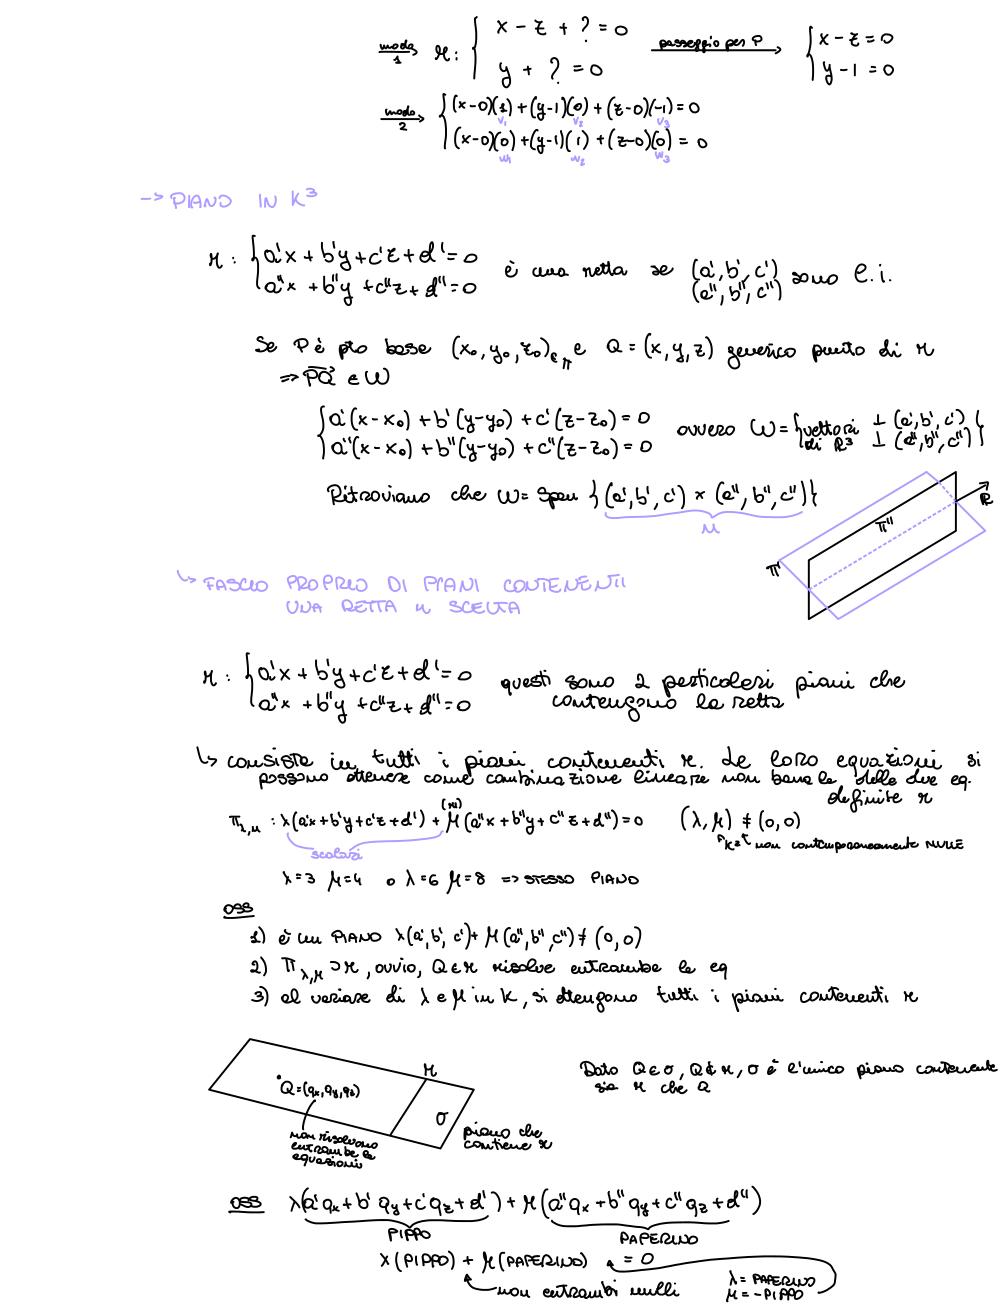 modo 1 → r : { x - z + ? = 0 passaggio per P → { x - z = 0
y + ? = 0 y - 1 = 0
modo 2 → { (x-0)(1) + (y-1)(0) + (z-0)(-1) = 0
v₁ v₂ v₃
(x-0)(0) + (y-1)(1) + (z-0)(0) = 0
w₁ w₂ w₃
-> PIANO IN K³
r : { a'x + b'y + c'z + d' = 0 è una retta se (a', b', c') sono l.i.
a''x + b''y + c''z + d'' = 0 (a'', b'', c'')
Se P è pto base (x₀, y₀, z₀) ∈ π e Q = (x, y, z) generico punto di r
=> PQ ∈ W
{ a'(x-x₀) + b'(y-y₀) + c'(z-z₀) = 0 ovvero W = { vettori ⊥ (a', b', c') }
a''(x-x₀) + b''(y-y₀) + c''(z-z₀) = 0 di R³ ⊥ (a'', b'', c'')
Ritroviamo che W = Span { (a', b', c') × (a'', b'', c'') }
μ
π' π'' R
↳ FASCIO PROPRIO DI PIANI CONTENENTI
UNA RETTA r SCELTA
r : { a'x + b'y + c'z + d' = 0 questi sono 2 particolari piani che
a''x + b''y + c''z + d'' = 0 contengono la retta
↳ consiste in tutti i piani contenenti r. Le loro equazioni si
possono ottenere come combinazione lineare non banale delle due eq.
definite r
π λ,μ : λ(a'x + b'y + c'z + d') + μ (mi) (a''x + b''y + c''z + d'') = 0 (λ, μ) ≠ (0,0)
scalari ∈ K² non contemporaneamente NULLE
λ=3 μ=4 o λ=6 μ=8 => STESSO PIANO
OSS
1) è un PIANO λ(a', b', c') + μ(a'', b'', c'') ≠ (0,0)
2) π λ,μ ⊃ r, ovvio, Q ∈ r risolve entrambe le eq
3) al variare di λ e μ in K, si ottengono tutti i piani contenenti r
r
Q = (qx, qy, qz)
σ
non risolvono
entrambe le
equazioni
piano che
contiene r
Dato Q ∈ σ, Q ∉ r, σ è l'unico piano contenente
sia r che Q
OSS λ(a'qx + b'qy + c'qz + d') + μ(a''qx + b''qy + c''qz + d'')
PIPPO PAPERINO
λ(PIPPO) + μ(PAPERINO) = 0
non entrambi nulli
λ = PAPERINO
μ = -PIPPO